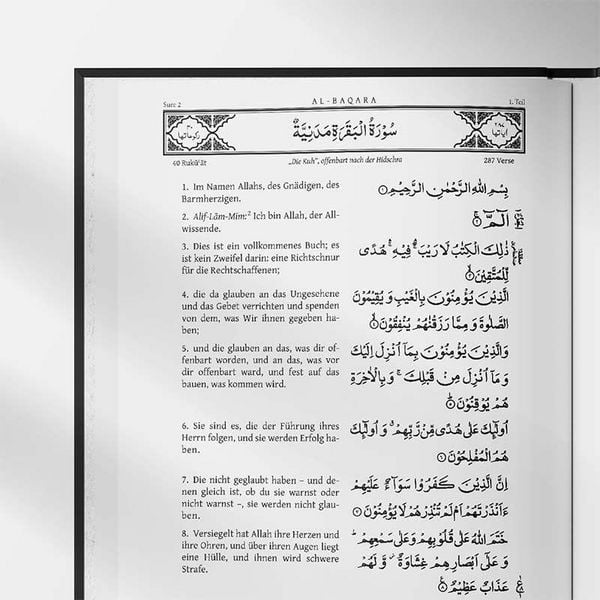 Sure 2 AL-BAQARA 1. Teil
رکوعاتها سُوْرَةُ الْبَقَرَةِ مَدَنِيَّةٌ اياتها
40 Rukū‘āt „Die Kuh“, offenbart nach der Hidschra 287 Verse
1. Im Namen Allahs, des Gnädigen, des
Barmherzigen.
2. Alif-Lām-Mīm:² Ich bin Allah, der All-
wissende.
3. Dies ist ein vollkommenes Buch; es
ist kein Zweifel darin: eine Richtschnur
für die Rechtschaffenen;
4. die da glauben an das Ungesehene
und das Gebet verrichten und spenden
von dem, was Wir ihnen gegeben ha-
ben;
5. und die glauben an das, was dir of-
fenbart worden, und an das, was vor
dir offenbart ward, und fest auf das
bauen, was kommen wird.
6. Sie sind es, die der Führung ihres
Herrn folgen, und sie werden Erfolg ha-
ben.
7. Die nicht geglaubt haben – und de-
nen gleich ist, ob du sie warnst oder
nicht warnst –, sie werden nicht glau-
ben.
8. Versiegelt hat Allah ihre Herzen und
ihre Ohren, und über ihren Augen liegt
eine Hülle, und ihnen wird schwere
Strafe.
بِسْمِ اللّٰهِ الرَّحْمٰنِ الرَّحِيْمِ ①
الٓمّٓ ②
ذٰلِكَ الْكِتٰبُ لَا رَيْبَ ۛ فِيْهِ ۛ هُدًى
لِّلْمُتَّقِيْنَ ③
الَّذِيْنَ يُؤْمِنُوْنَ بِالْغَيْبِ وَيُقِيْمُوْنَ
الصَّلٰوةَ وَمِمَّا رَزَقْنٰهُمْ يُنْفِقُوْنَ ④
وَالَّذِيْنَ يُؤْمِنُوْنَ بِمَآ اُنْزِلَ اِلَيْكَ
وَمَآ اُنْزِلَ مِنْ قَبْلِكَ ۚ وَبِالْاٰخِرَةِ
هُمْ يُوْقِنُوْنَ ⑤
اُولٰٓئِكَ عَلٰى هُدًى مِّنْ رَّبِّهِمْ ۗ وَاُولٰٓئِكَ
هُمُ الْمُفْلِحُوْنَ ⑥
اِنَّ الَّذِيْنَ كَفَرُوْا سَوَآءٌ عَلَيْهِمْ
ءَاَنْذَرْتَهُمْ اَمْ لَمْ تُنْذِرْهُمْ لَا يُؤْمِنُوْنَ ⑦
خَتَمَ اللّٰهُ عَلٰى قُلُوْبِهِمْ وَعَلٰى سَمْعِهِمْ ؕ
وَعَلٰٓى اَبْصَارِهِمْ غِشَاوَةٌ ۫ وَّلَهُمْ
عَذَابٌ عَظِيْمٌ ⑧